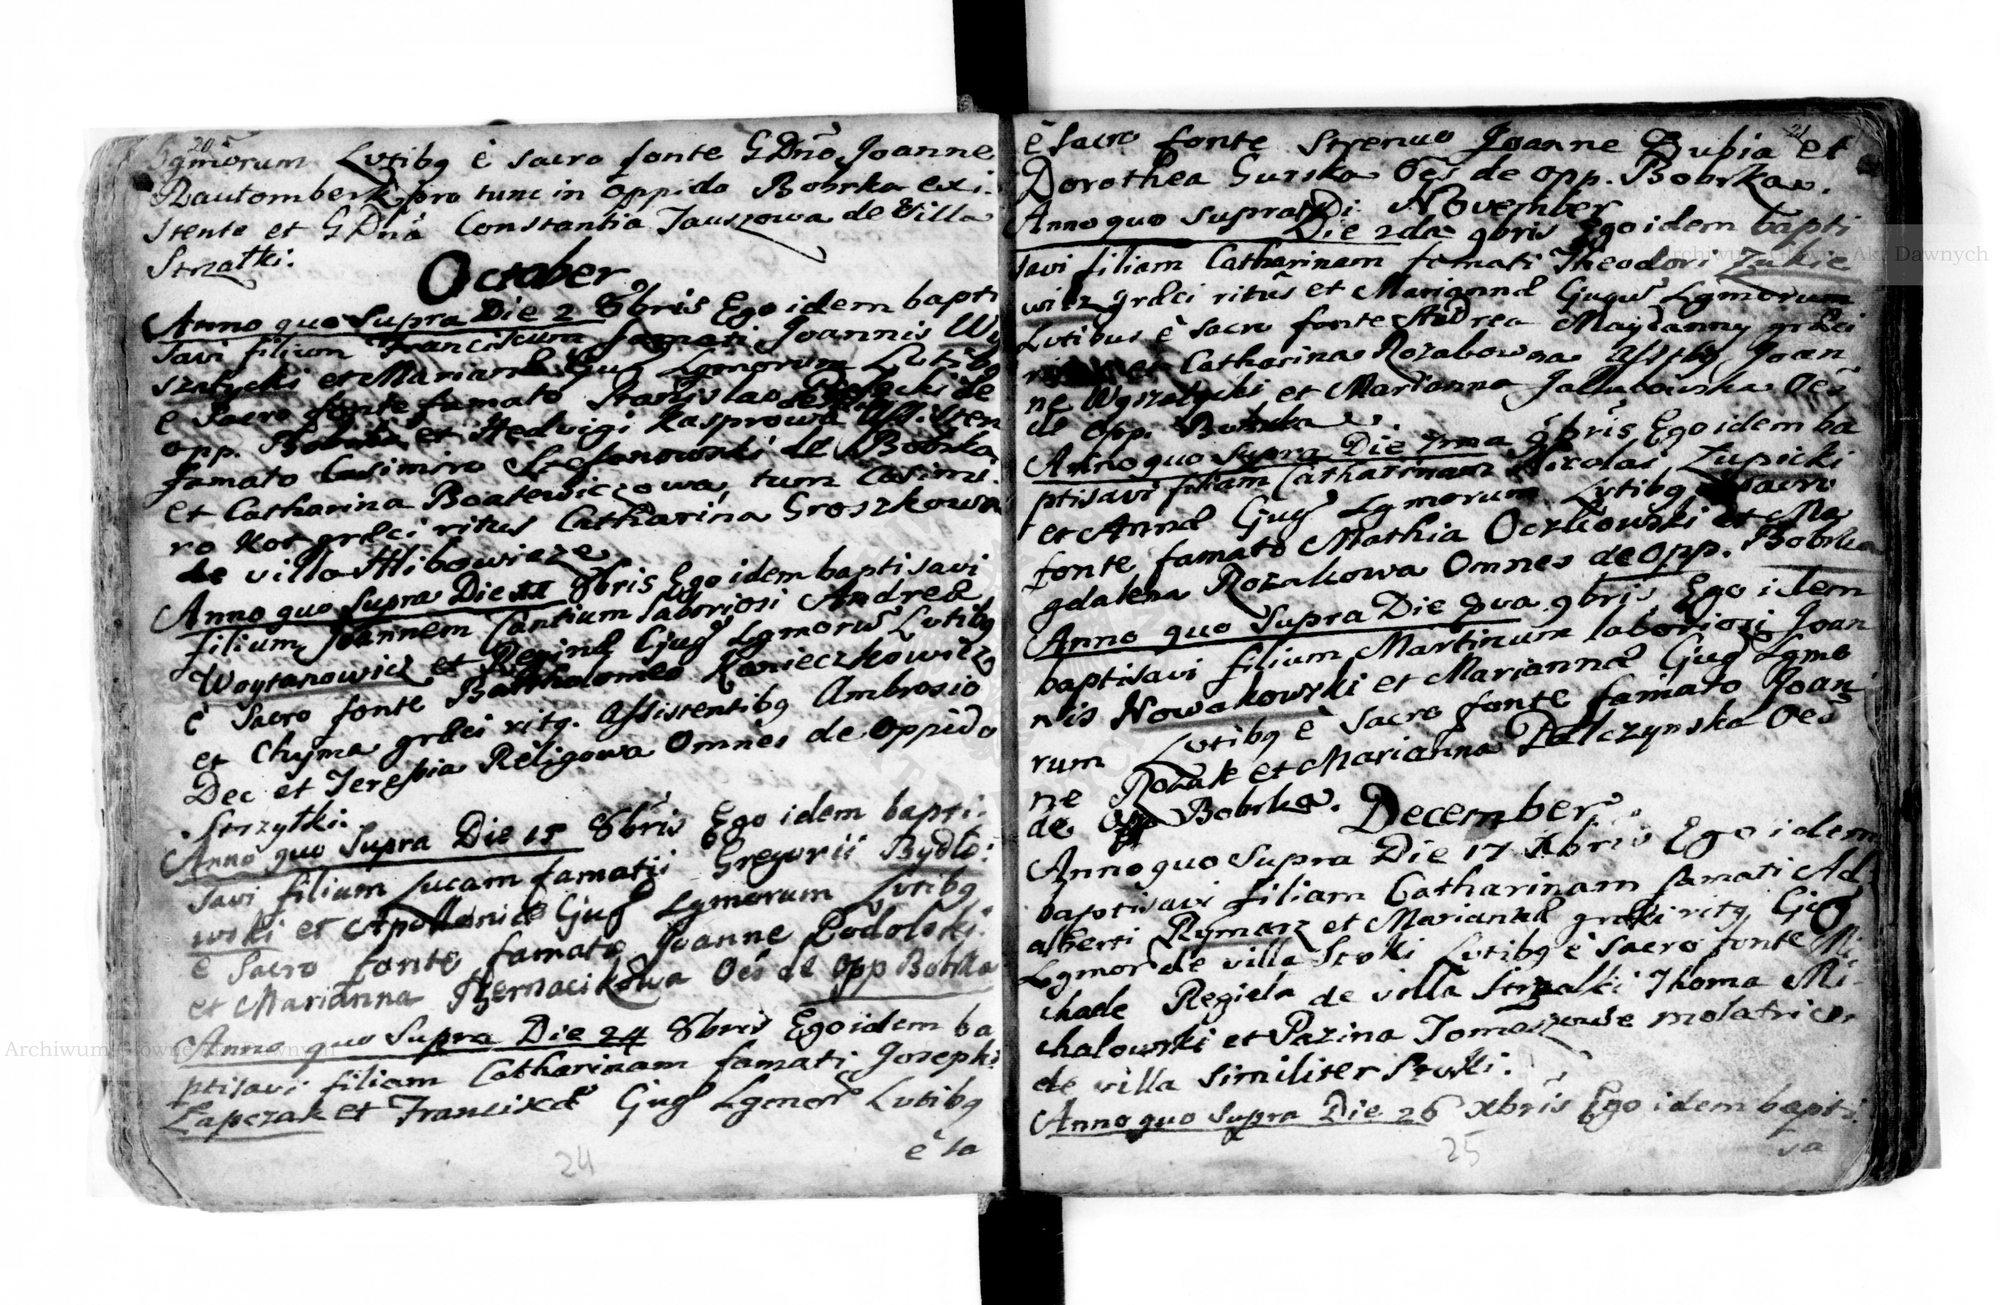 20
Lgmorum Lvtibq è sacro fonte GDño Joanne
Rautomberk pro tunc in oppido Bobrka exi-
stente et GDñā Constantia Jauszowa de Villa
Strzałki.
October
Anno quo supra Die 2 8bris Ego idem bapti
savi filium Franciscum famati Joannis Wy
szatycki et Mariannæ Cjug Lgmorum Lvtibq
è sacro fonte famato Stanislao de
opp. Bobrka et Hedvigi Kasprowa Ass. sten
famato Casimiro Stefanowski de Bobrka
et Catharina Boatewiczowa, tum Casimi-
ro Kot græci ritus Catharina Groszkowa
de villa Hlibowicze
Anno quo supra Die 11 8bris Ego idem baptisavi
filium Joannem Cantium laboriosi Andreæ
Woytanowicz et Reginæ Cjug Lgmorū Lvtibq
è sacro fonte Bartholomeo Konieczkowicz
et Chyma græci ritq. Assistentibq Ambrosio
Dec et Teresia Religowa Omnes de oppido
Strzyłki.
Anno quo supra Die 15 8bris Ego idem bapti-
savi filium Lucam famatii Gregorii Bydło-
wski et Apolloniæ Cjug Lgmorum Lvtibq
è sacro fonte famato Joanne Podolski
et Marianna Biernacikowa Oēs de opp Bobrka
Anno quo supra Die 24 8bris Ego idem ba
ptisavi filiam Catharinam famati Josephi
Łapczak et Franciscæ Cjug Lgmor Lvtibq
è sa
24
21
è sacro fonte strenuo Joanne Bubia et
Dorothea Gurska Oēs de opp. Bobrka.
November
Anno quo supra Die 2da 9bris Ego idem bapti
savi filiam Catharinam famati Theodori
wicz græci ritūs et Mariannæ Cjugū Lgmorum
Lvtibus è sacro fonte Andrea Maydanny græci
et Catharina Rozakowna Asstbq Joan
ne Wyszatycki et Marianna Jallubowska Oēs
de opp. Bobrka.
Anno quo supra Die 7ma 9bris Ego idem ba
ptisavi filiam Catharinam Nicolai Zupicki
et Annæ Cjug Lgmorum Lvtibq è sacro
fonte famato Mathia Oczkowski et Ma
gdalena Rozakowa Omnes de opp. Bobrka
Anno quo supra Die 8va 9bris Ego idem
baptisavi filium Martinum laboriosi Joan
nis Nowakowski et Mariannæ Cjug Lgmo
rum Lvtibq è sacro fonte famato Joan
ne Rozak et Marianna Palczynska Oēs
de opp Bobrka.
December
Anno quo supra Die 17 Xbris Ego idem
baptisavi filiam Catharinam famati Ad
alberti Rymarz et Mariannæ græci ritq Cjug
Lgmor de villa Stoki Lvtibq è sacro fonte Mi-
chaele Regiela de villa Strzałki Thoma Mi-
chalowski et Pazina Tomaszowe molatrice
de villa similiter Stoki.
Anno quo supra Die 26 Xbris Ego idem bapti-
sa
25
Archiwum Główne Akt Dawnych
Archiwum Główne Akt Dawnych